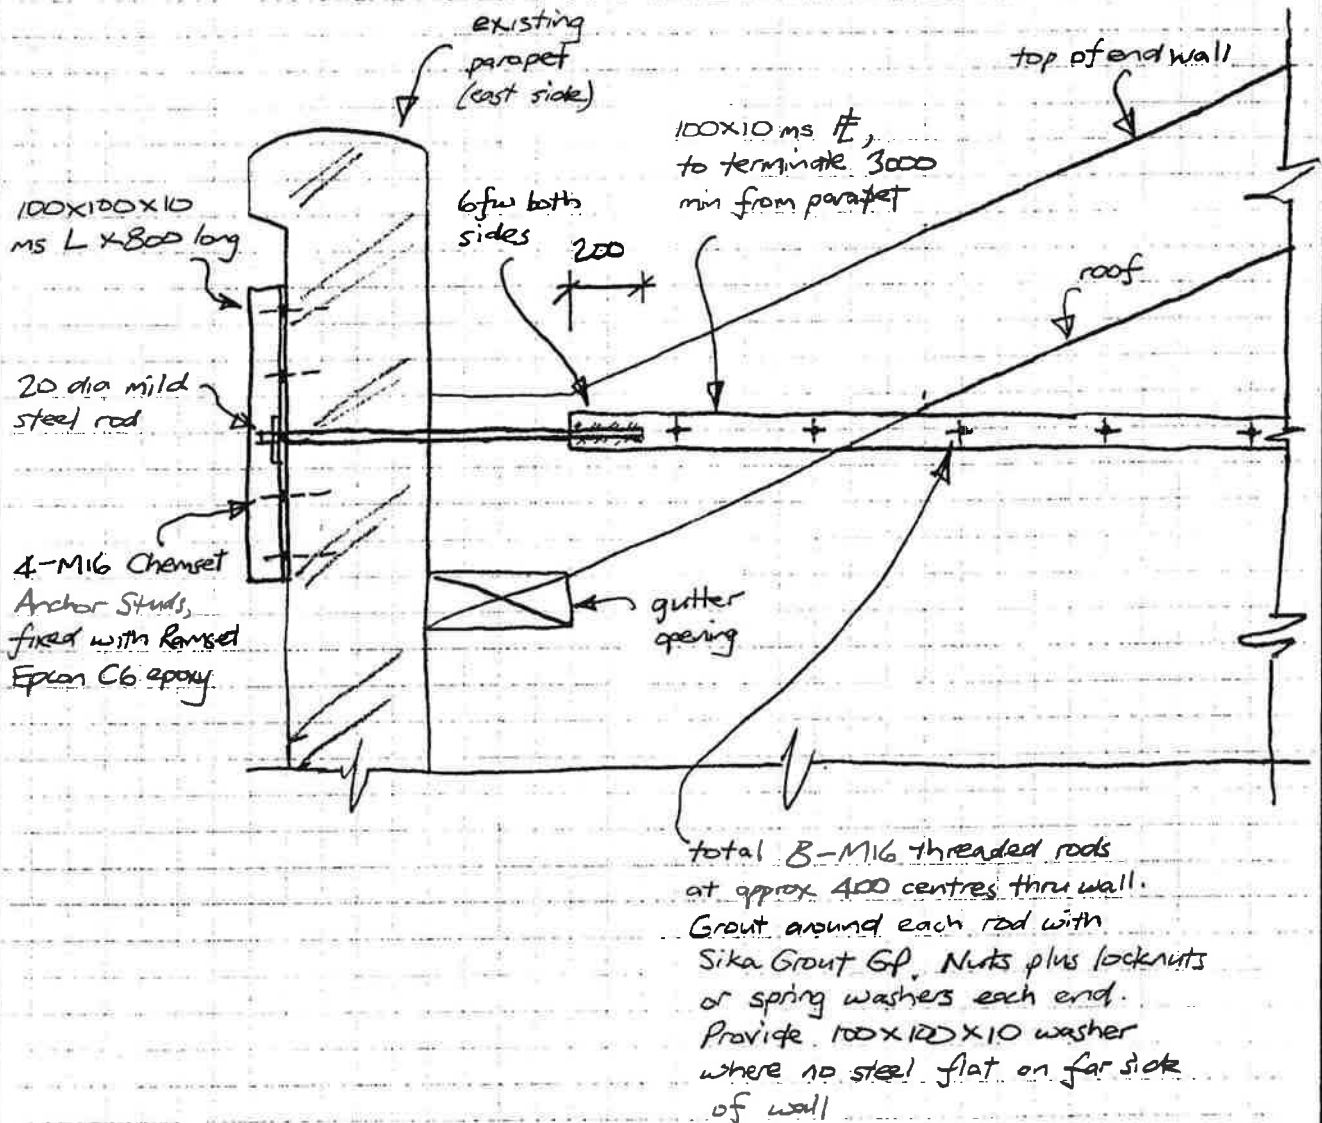 existing
parapet
(east side)
top of end wall
100x10 ms PL,
to terminate 3000
min from parapet
100x100x10
ms L x 800 long
6fw both
sides
200
roof
20 dia mild
steel rod
4-M16 Chemset
Anchor Studs,
fixed with Ramset
Epcon C6 epoxy
gutter
opening
total 8-M16 threaded rods
at approx 400 centres thru wall.
Grout around each rod with
Sika Grout GP. Nuts plus locknuts
or spring washers each end.
Provide 100x100x10 washer
where no steel flat on far side
of wall